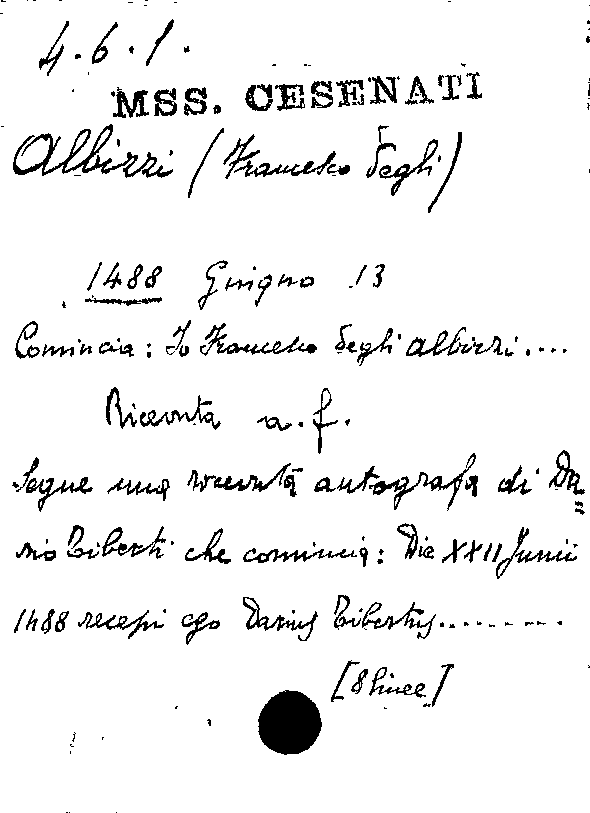 4.6.1.
MSS. CESENATI
Albizzi (Francesco degli)
1488 Giugno 13
Comincia: Io Francesco degli Albizzi....
Ricevuta a.f.
Segue una ricevuta autografa di Da=
rio Tiberti che comincia: Die XXII Junii
1488 recepi ego Darius Tibertus.........
[8 linee]